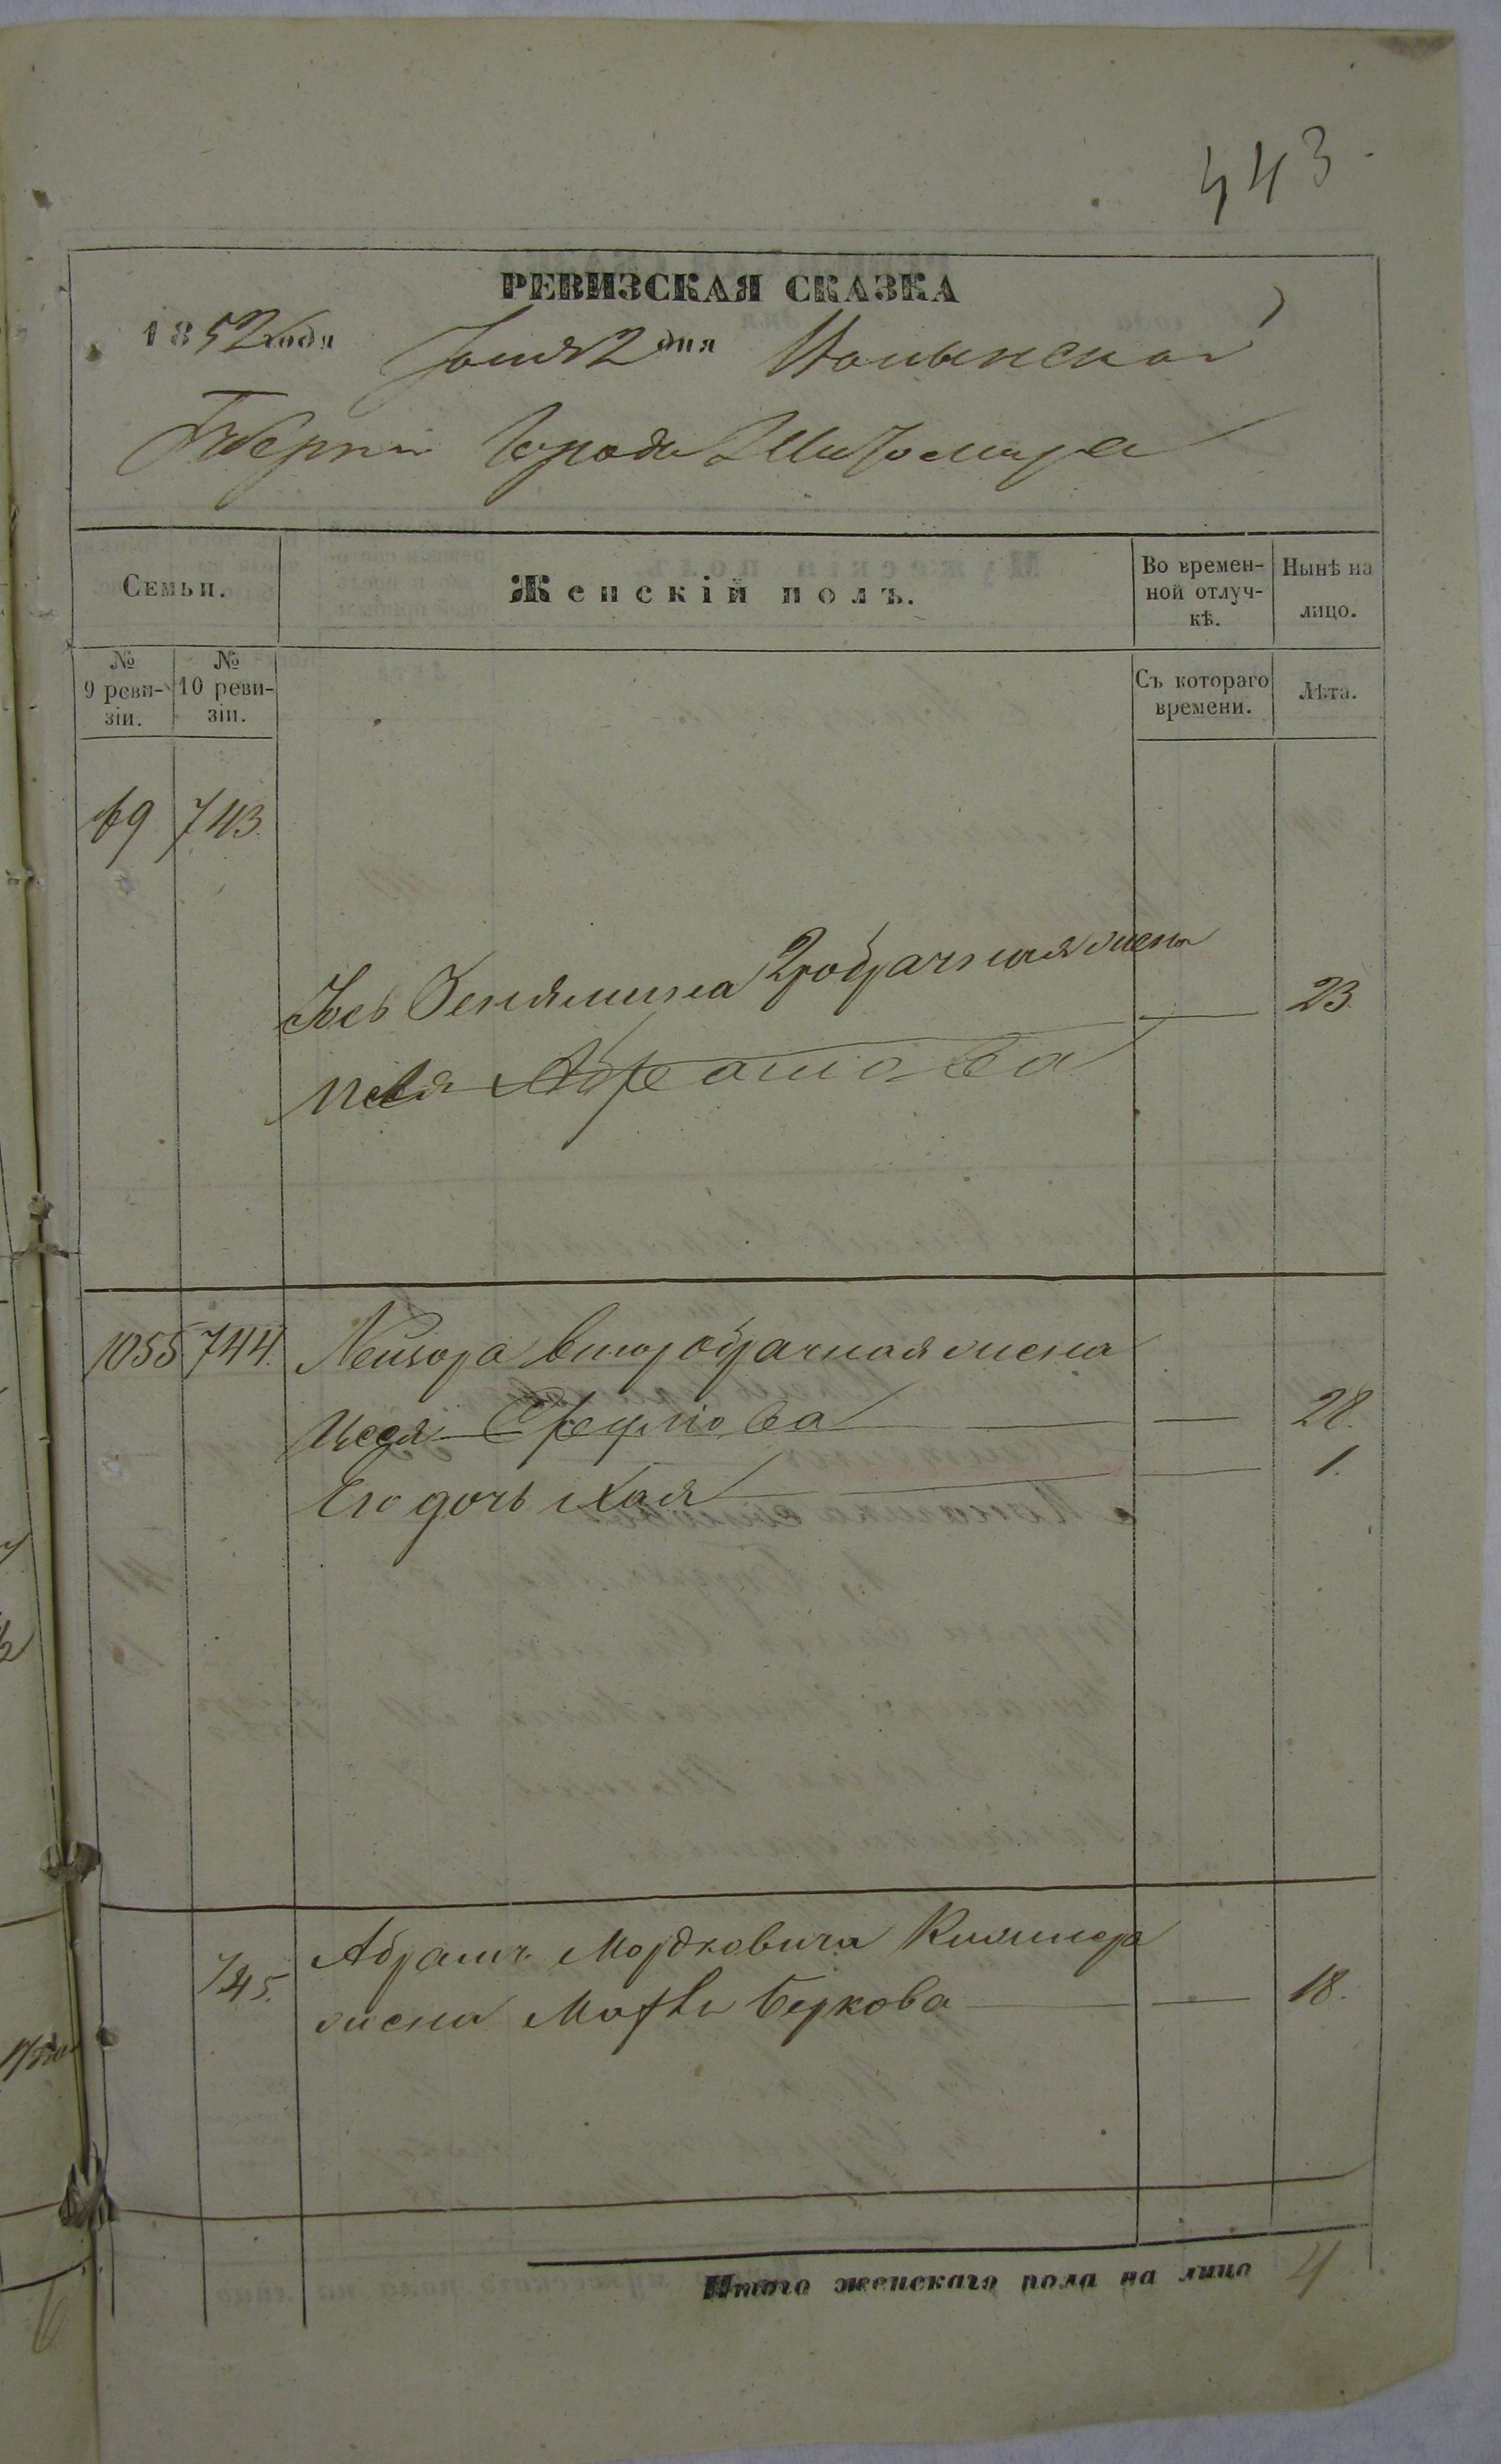 443
РЕВИЗСКАЯ СКАЗКА
1852 года Іюня 2 дня Волынской
Губерніи Города Житомира
Семьи.
Женскій полъ.
Во времен-
ной отлуч-
кѣ.
Нынѣ на
лицо.
№
9 реви-
зіи.
№
10 реви-
зіи.
Съ котораго
времени.
Лѣта.
69 743.
Беньямина 2робрачная жена 23.
Абрамова
1055 744. Лейзора второбрачная жена
Цеся 28.
Его дочь Хая 1.
Абрамъ Мордковича
745. жена Беркова 18.
Итого женскаго пола на лицо 4